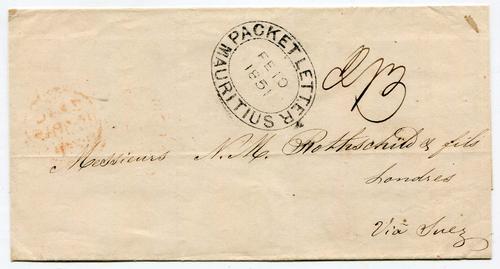 PACKET LETTER
MAURITIUS
FE 10
1851
Messieurs N. M. Rothschild & fils
Londres
Via Suez